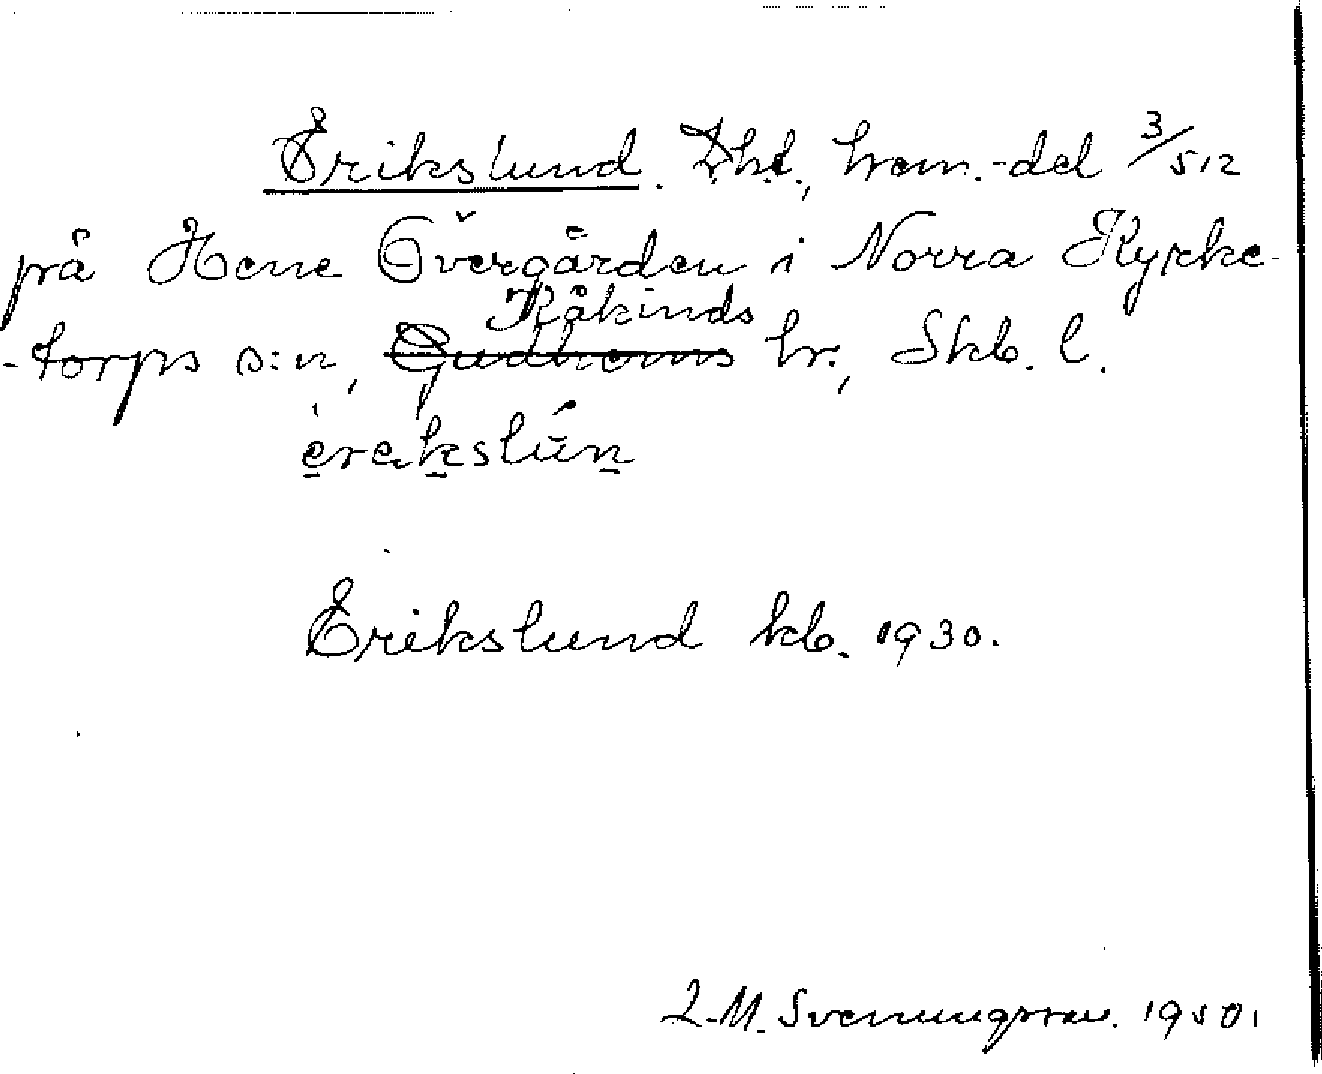 Erikslund. Lht., hem.-del 3/512
på Hene Övergården i Norra Kyrke-
-torps s:n, Kåkinds Gudhems hr., Skb. l.
erikslún
Erikslund kb. 1930.
L.M. Svenungsson. 1950.